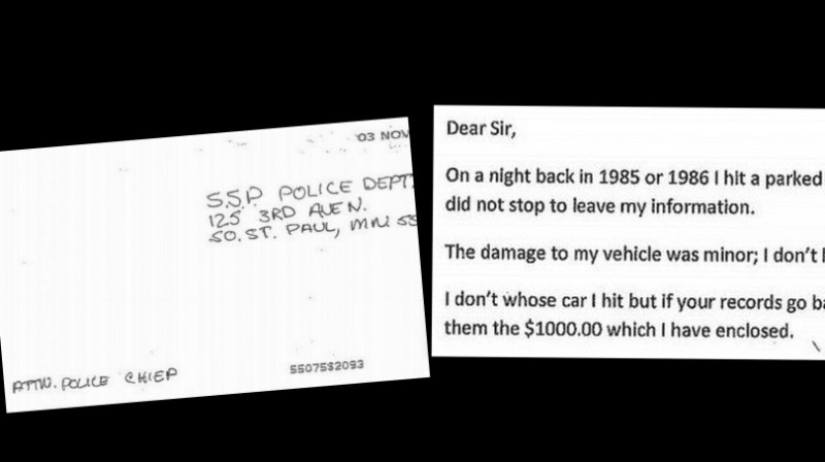 03 NOV
S.S.P POLICE DEPT.
125 3RD AVE N.
SO. ST. PAUL, MN 55
ATTN. POLICE CHIEF
5507582093
Dear Sir,
On a night back in 1985 or 1986 I hit a parked
did not stop to leave my information.
The damage to my vehicle was minor; I don't
I don't whose car I hit but if your records go ba
them the $1000.00 which I have enclosed.